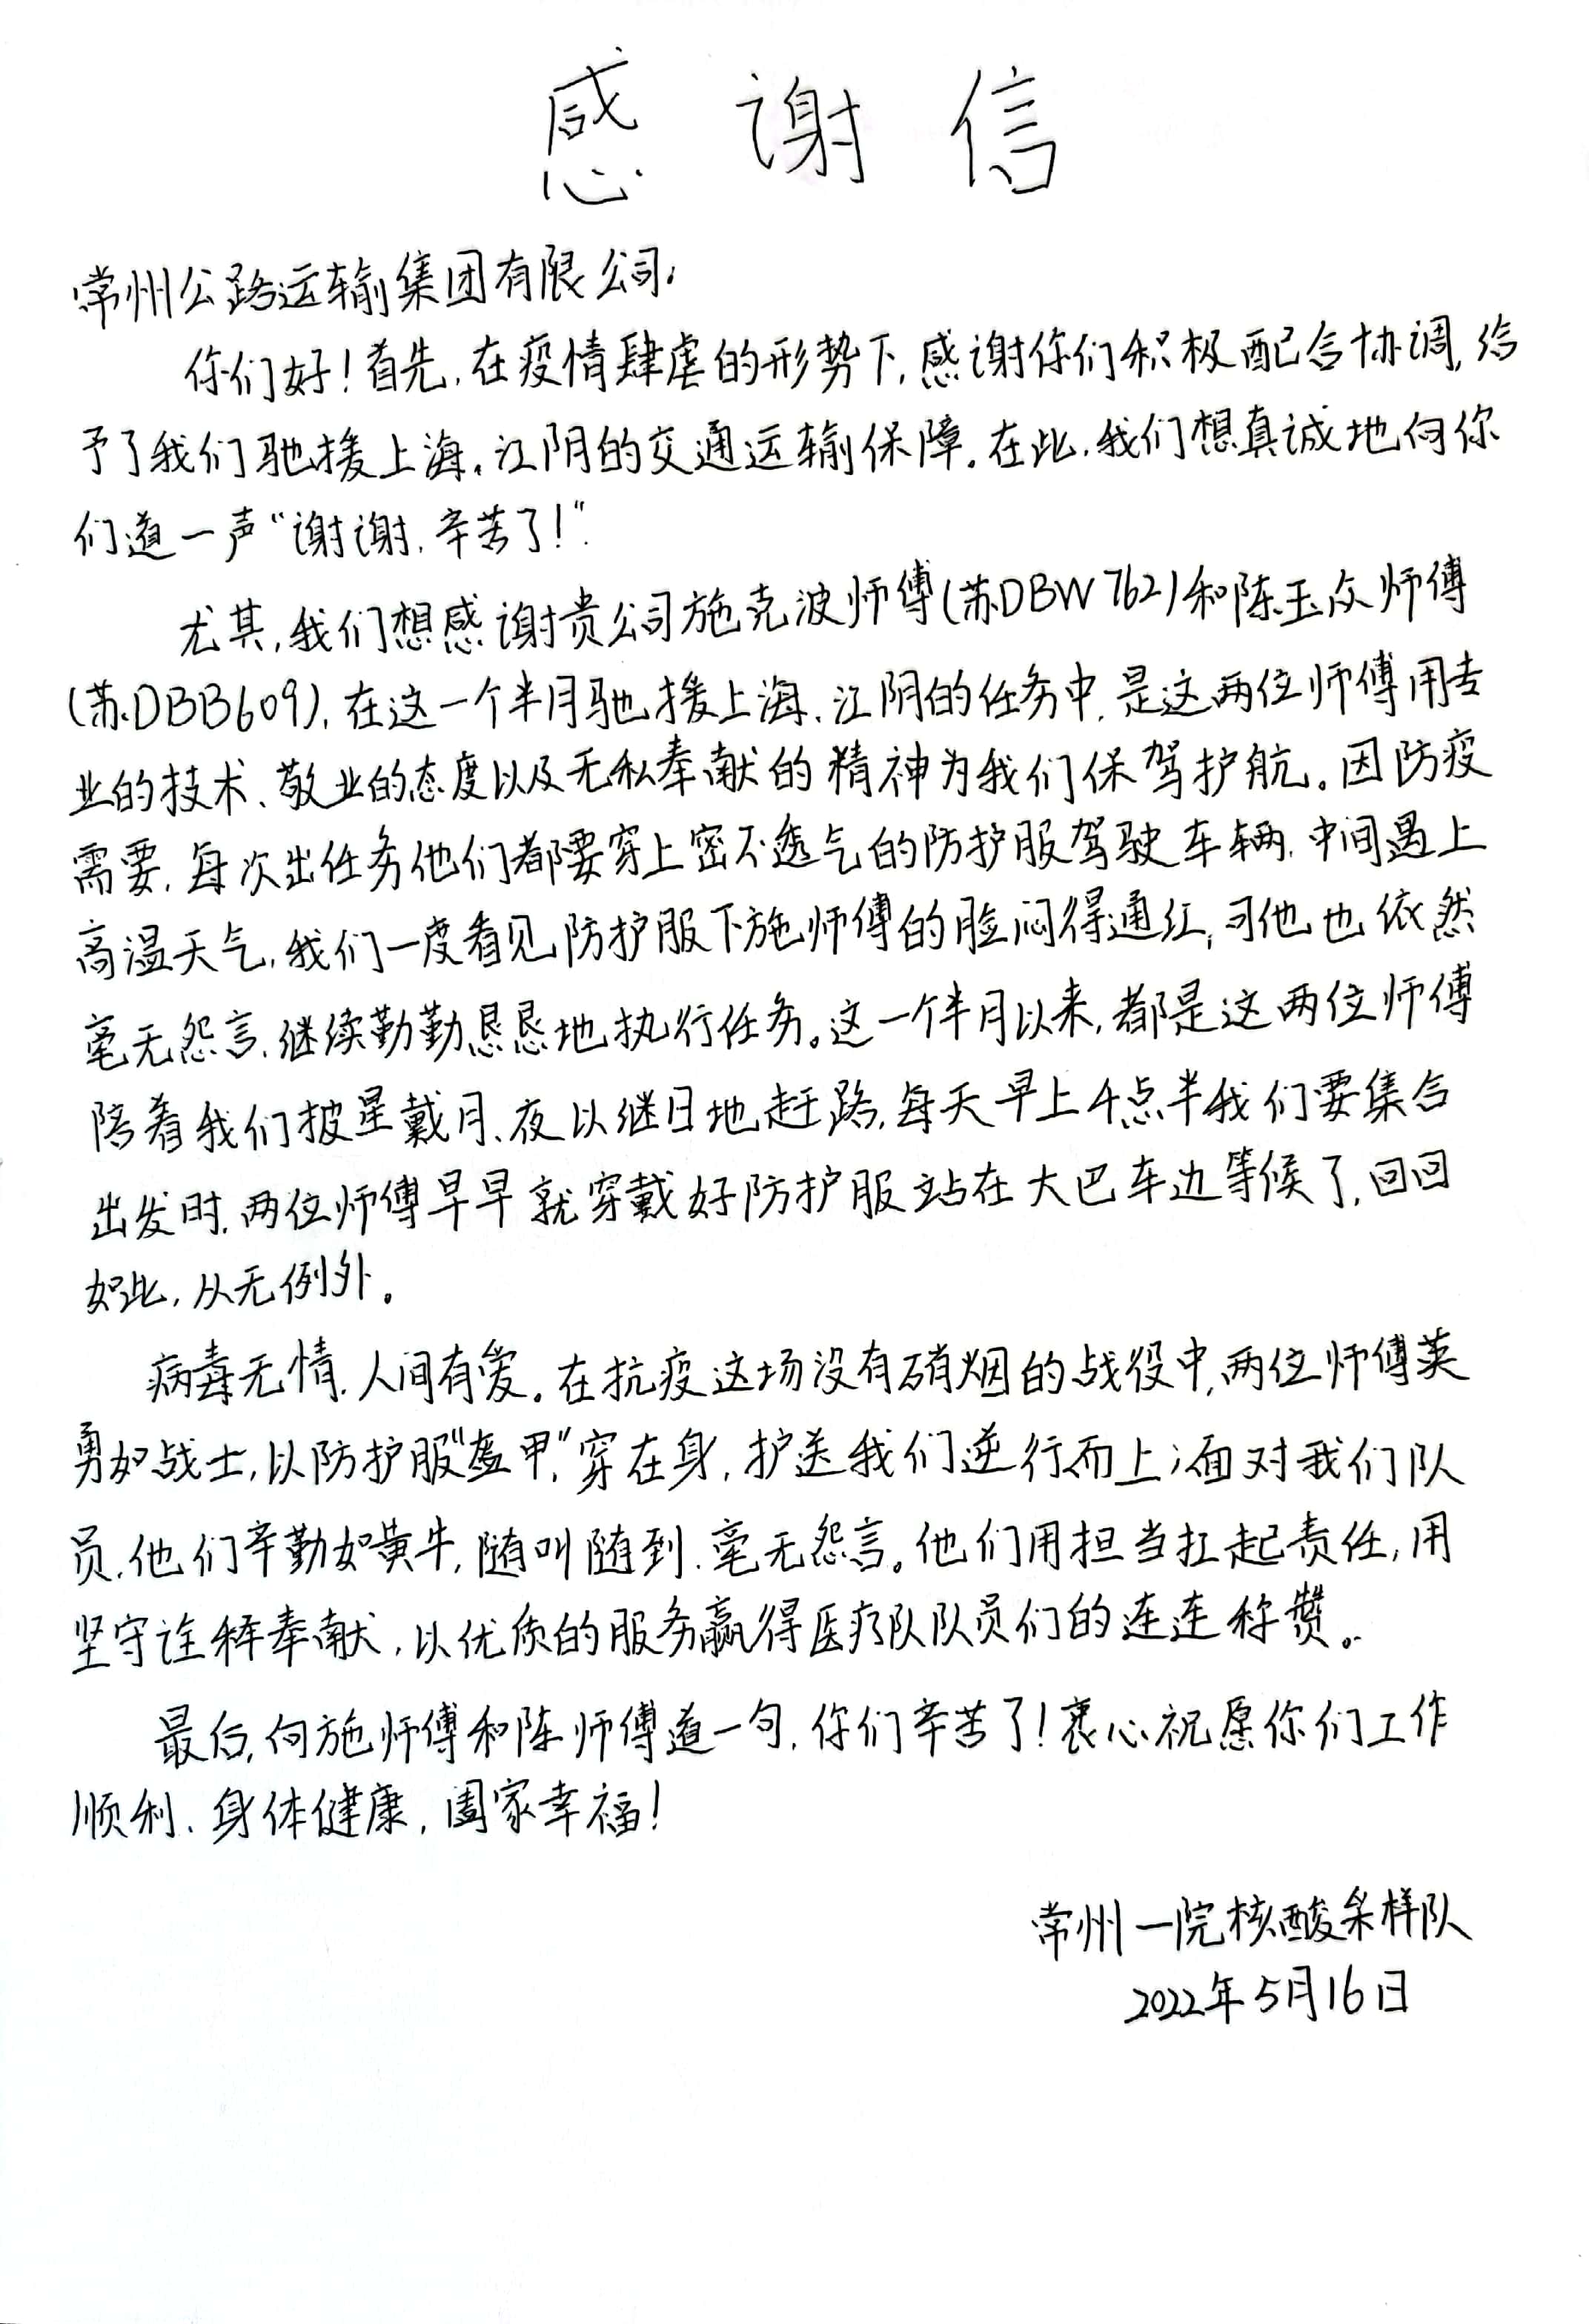 感谢信
常州公路运输集团有限公司:
你们好!首先,在疫情肆虐的形势下,感谢你们积极配合协调,给
予了我们驰援上海、江阴的交通运输保障。在此,我们想真诚地向你
们道一声“谢谢,辛苦了!”.
尤其,我们想感谢贵公司施克波师傅(苏DBW762)和陈玉众师傅
(苏DBB609),在这一个半月驰援上海、江阴的任务中,是这两位师傅用专
业的技术、敬业的态度以及无私奉献的精神为我们保驾护航。因防疫
需要,每次出任务他们都要穿上密不透气的防护服驾驶车辆,中间遇上
高温天气,我们一度看见防护服下施师傅的脸闷得通红,可他也依然
毫无怨言,继续勤勤恳恳地执行任务。这一个半月以来,都是这两位师傅
陪着我们披星戴月、夜以继日地赶路,每天早上4点半我们要集合
出发时,两位师傅早早就穿戴好防护服站在大巴车边等候了,回回
如此,从无例外。
病毒无情,人间有爱。在抗疫这场没有硝烟的战役中,两位师傅英
勇如战士,以防护服“盔甲”穿在身,护送我们逆行而上;面对我们队
员,他们辛勤如黄牛,随叫随到,毫无怨言。他们用担当扛起责任,用
坚守诠释奉献,以优质的服务赢得医疗队队员们的连连称赞。
最后,向施师傅和陈师傅道一句,你们辛苦了!衷心祝愿你们工作
顺利、身体健康,阖家幸福!
常州一院核酸采样队
2022年5月16日